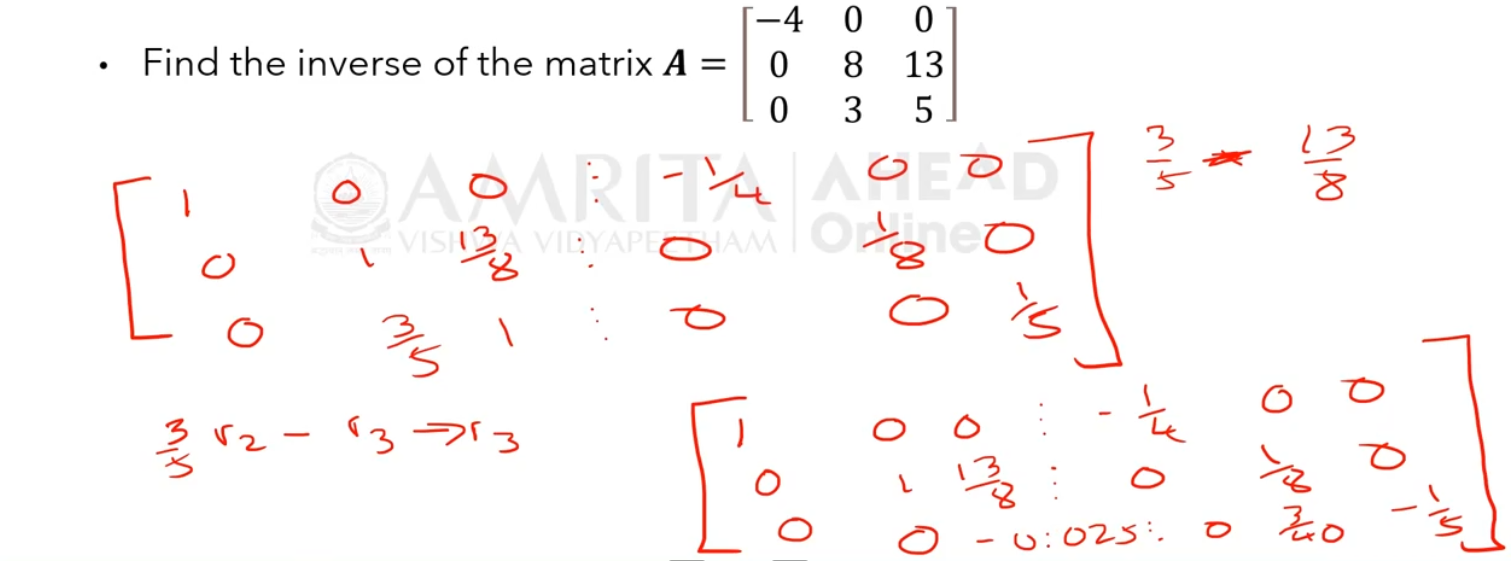 • Find the inverse of the matrix A = [ −4 0 0
0 8 13
0 3 5 ]
AMRITA | AHEAD
VISHWA VIDYAPEETHAM | Online
3/5 * 13/8
[ 1 0 0 : -1/4 0 0
0 1 13/8 : 0 1/8 0
0 3/5 1 : 0 0 1/5 ]
3/5 r2 - r3 → r3
[ 1 0 0 : -1/4 0 0
0 1 13/8 : 0 1/8 0
0 0 -0.025 : 0 3/40 -1/5 ]